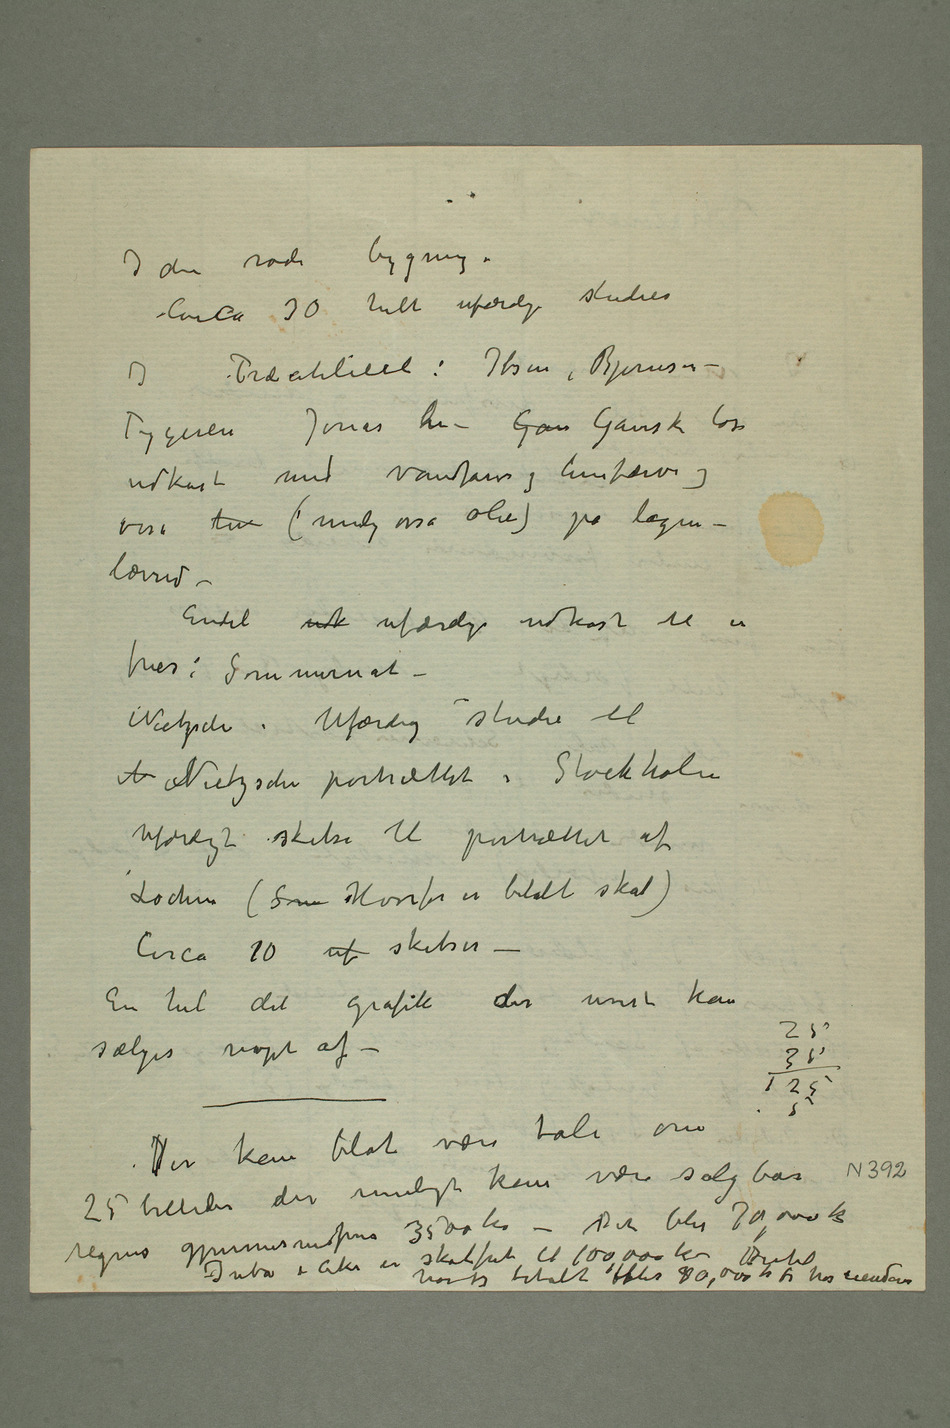 I den røde bygning.
Circa 30 helt ufærdge studier
I Træatelieet: Ibsen, Bjørnson –
Tyggeren Jonas Lie – Gan Ganske løse
udkast med vandfarve og limfarve og
osså (mulig osså olie) på lagen –
lærred –
Endel udk ufærdige udkast til en
fries: Sommernat –
Nietzsche. Ufærdig studie til
Nietzsche portrættet i Stockholm
Ufærdigt skitse til portrættet af
(Som Hvorfor er betalt skat)
Circa 10 uf skitser –
En hel del grafik der unst kan
sælges noget af –
25
35
125
5
Der kan blot være tale om
25 billeder der muligt kan være salgbar
N 392
regnes gjennemsnitspris 3500 kr – Det blir 70,000 k
i Aker er skatfrit til 100,000 kr
betalt blir 90,000 k